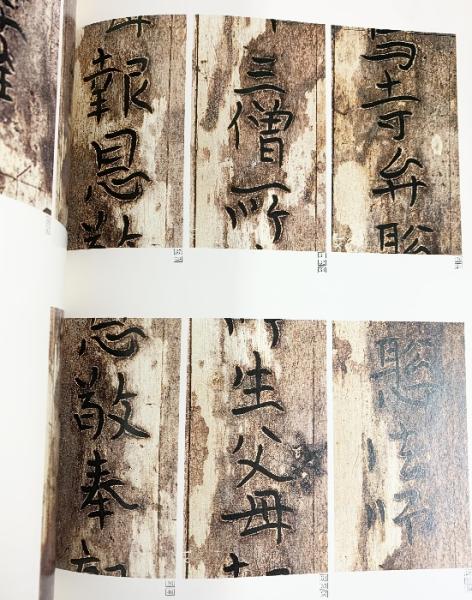 鳥寺弁聡
三僧所
報恩敬
聡法師
所生父母
恩敬奉